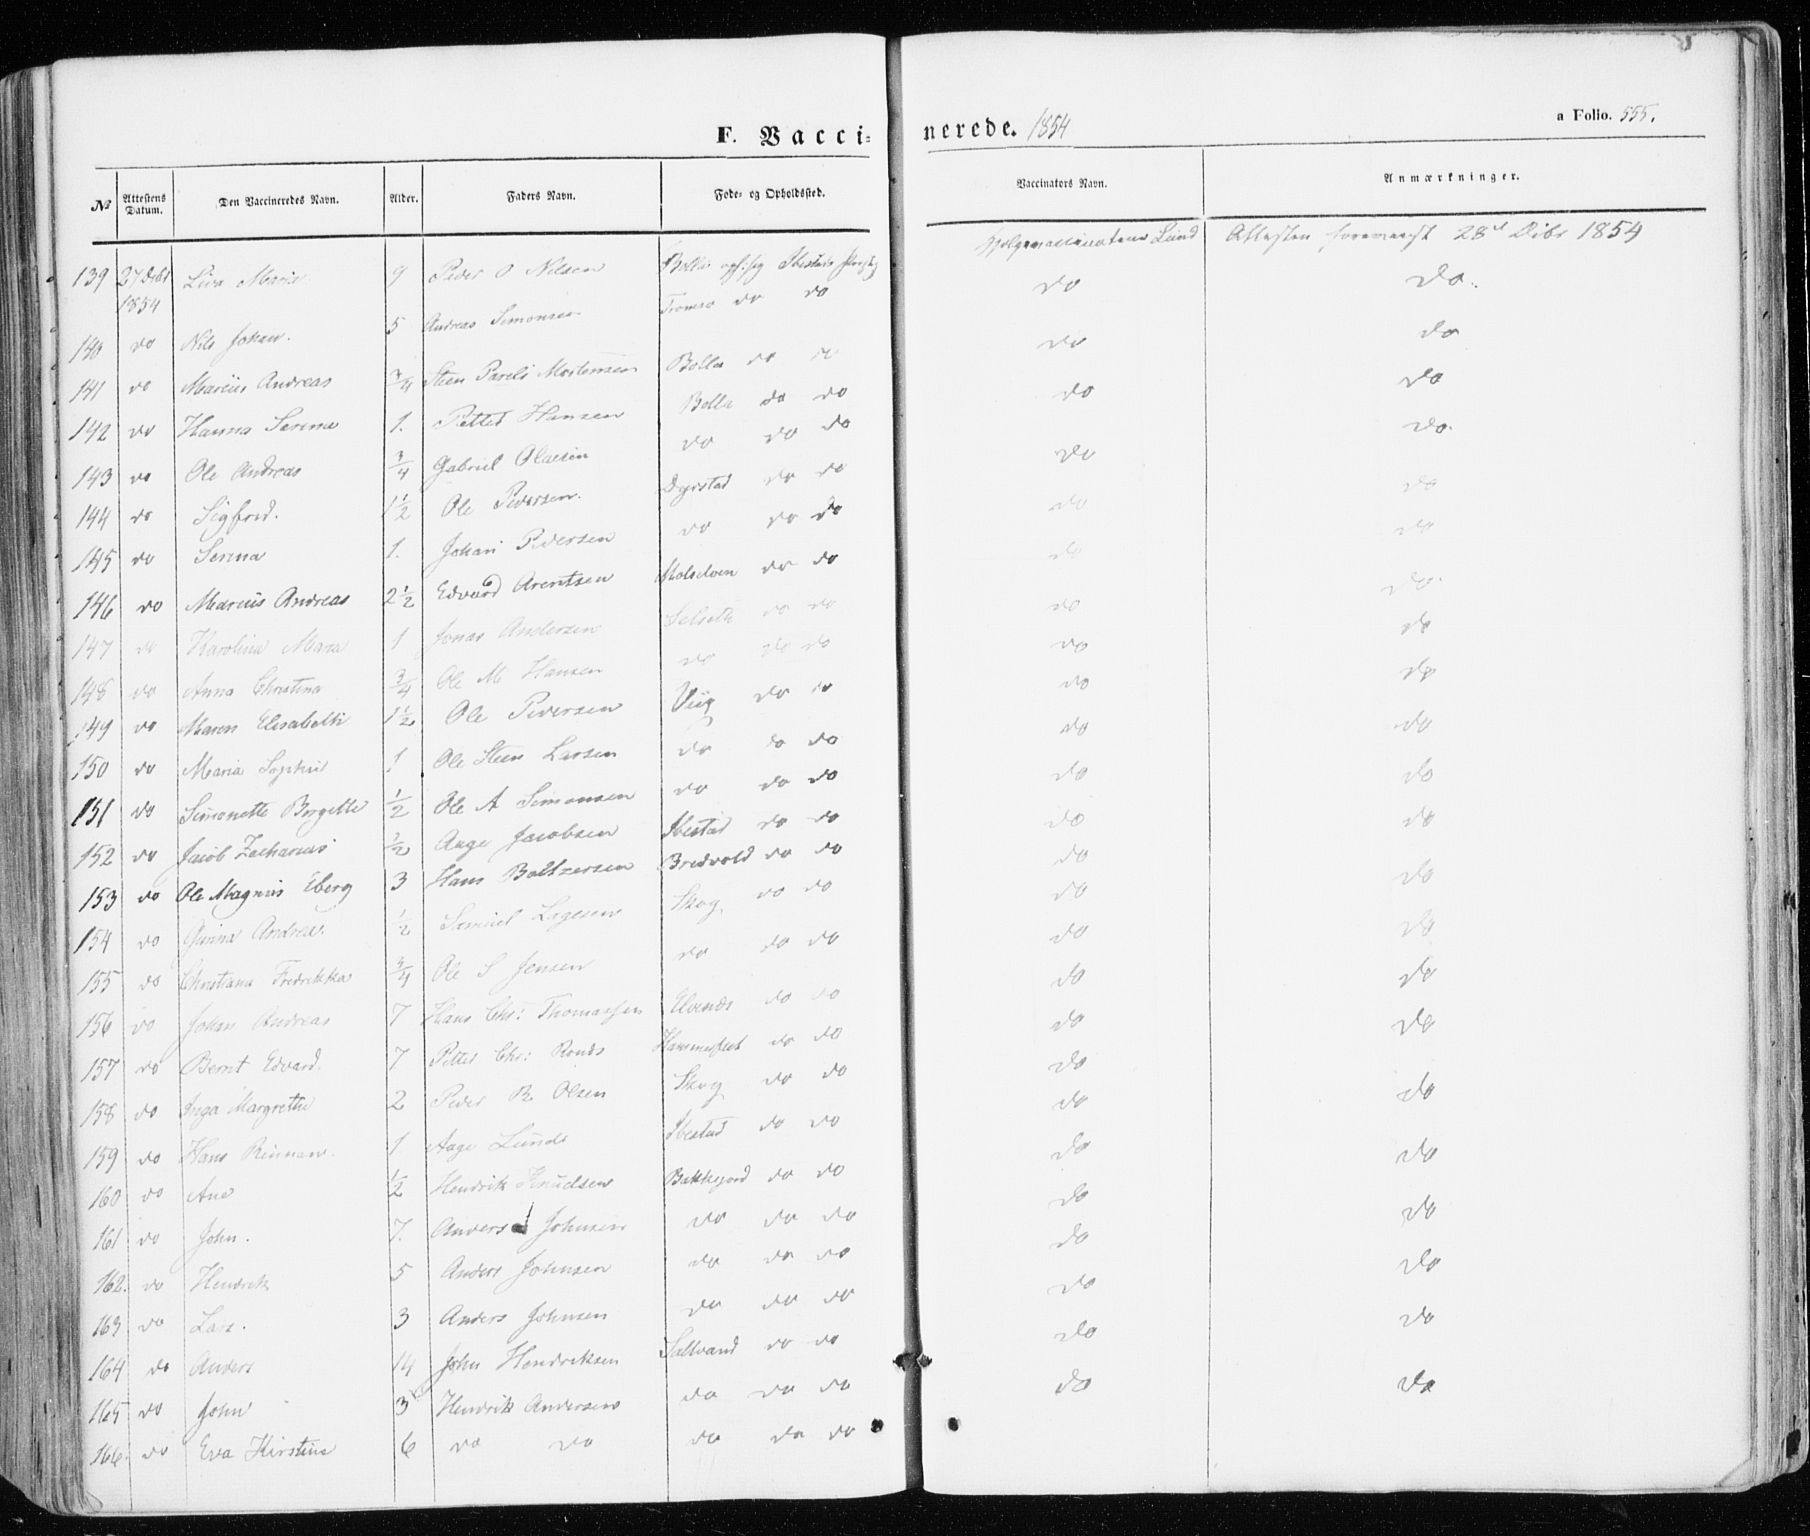 F. Vacci- nerede. 1854 a Folio. 555.
No Attestens Datum. Den Vaccineredes Navn. Alder. Faders Navn. Føde- og Opholdssted. Vaccinators Navn. Anmærkninger.
139 27 Debr 1854 Maria 9 Peder O Nilsen Bolla Ibestads Hjelpevaccinateur Lund Attesten foreviist 28d Dcbr 1854
140 do Nils Johan. 5 Andreas Simonsen Tromsø do do do do.
141 do Marius Andreas 3/4 Steen Mortensen Bolla do do do do
142 do Hanna Serina 1. Petter Hansen Bolla do do do do
143 do Ole Andreas 3/4 Gabriel Olaisen do do do do do.
144 do Sigfred. 1 1/2 Ole Pedersen. Dyrstad do do do do
145 do Serina 1. Johan Pedersen do do do do do
146 do Marius Andreas 2 1/2 Edvard Arentsen Molselven do do do do.
147 do Karolina Maria 1 Jonas Andersen Selseth do do do do
148 do Anna Christina 3/4 Ole M Hansen do do do do do
149 do Maren Elisabeth 1 1/2 Ole Pedersen Viig do do do do
150 do Maria Sophie 1 Ole Steen Larsen do do do do do
151 do Simonette Birgette 1/2 Ole A Simonsen do do do do do
152 do Jacob Zacharias 1/2 Aage Jacobsen Ibestad do do do do
153 do Ole Magnus Eberg 3 Hans Baltzersen Bredvold do do do do
154 do Andrea. 1/2 Samuel Skog do do do do
155 do Christiana Fredrikka 3/4 Ole S Jensen do do do do do
156 do Johan Andreas 7 Hans Chr: Thomassen Elvenæs do do do do
157 do Bernt Edvard. 7 Petter Chr: Hammerfest do do do do
158 do Inga Margrethe 2 Peder R Olsen Skog do do do do
159 do Hans 1 Aage Lund Ibestad do do do do
160 do Ane 1/2 Hendrik Knudsen Bakkejord do do do do
161 do John. 7. Anders Johnsen do do do do do
162. do Hendrik 5 Anders Johnsen do do do do do
163 do Lars. 3 Anders Johnsen do do do do do
164 do Anders 14 John Hendriksen Saltvand do do do do
165 do John 3 Hendrik Andersen do do do do do
166 do Eva Kirstine 6 do do do do do